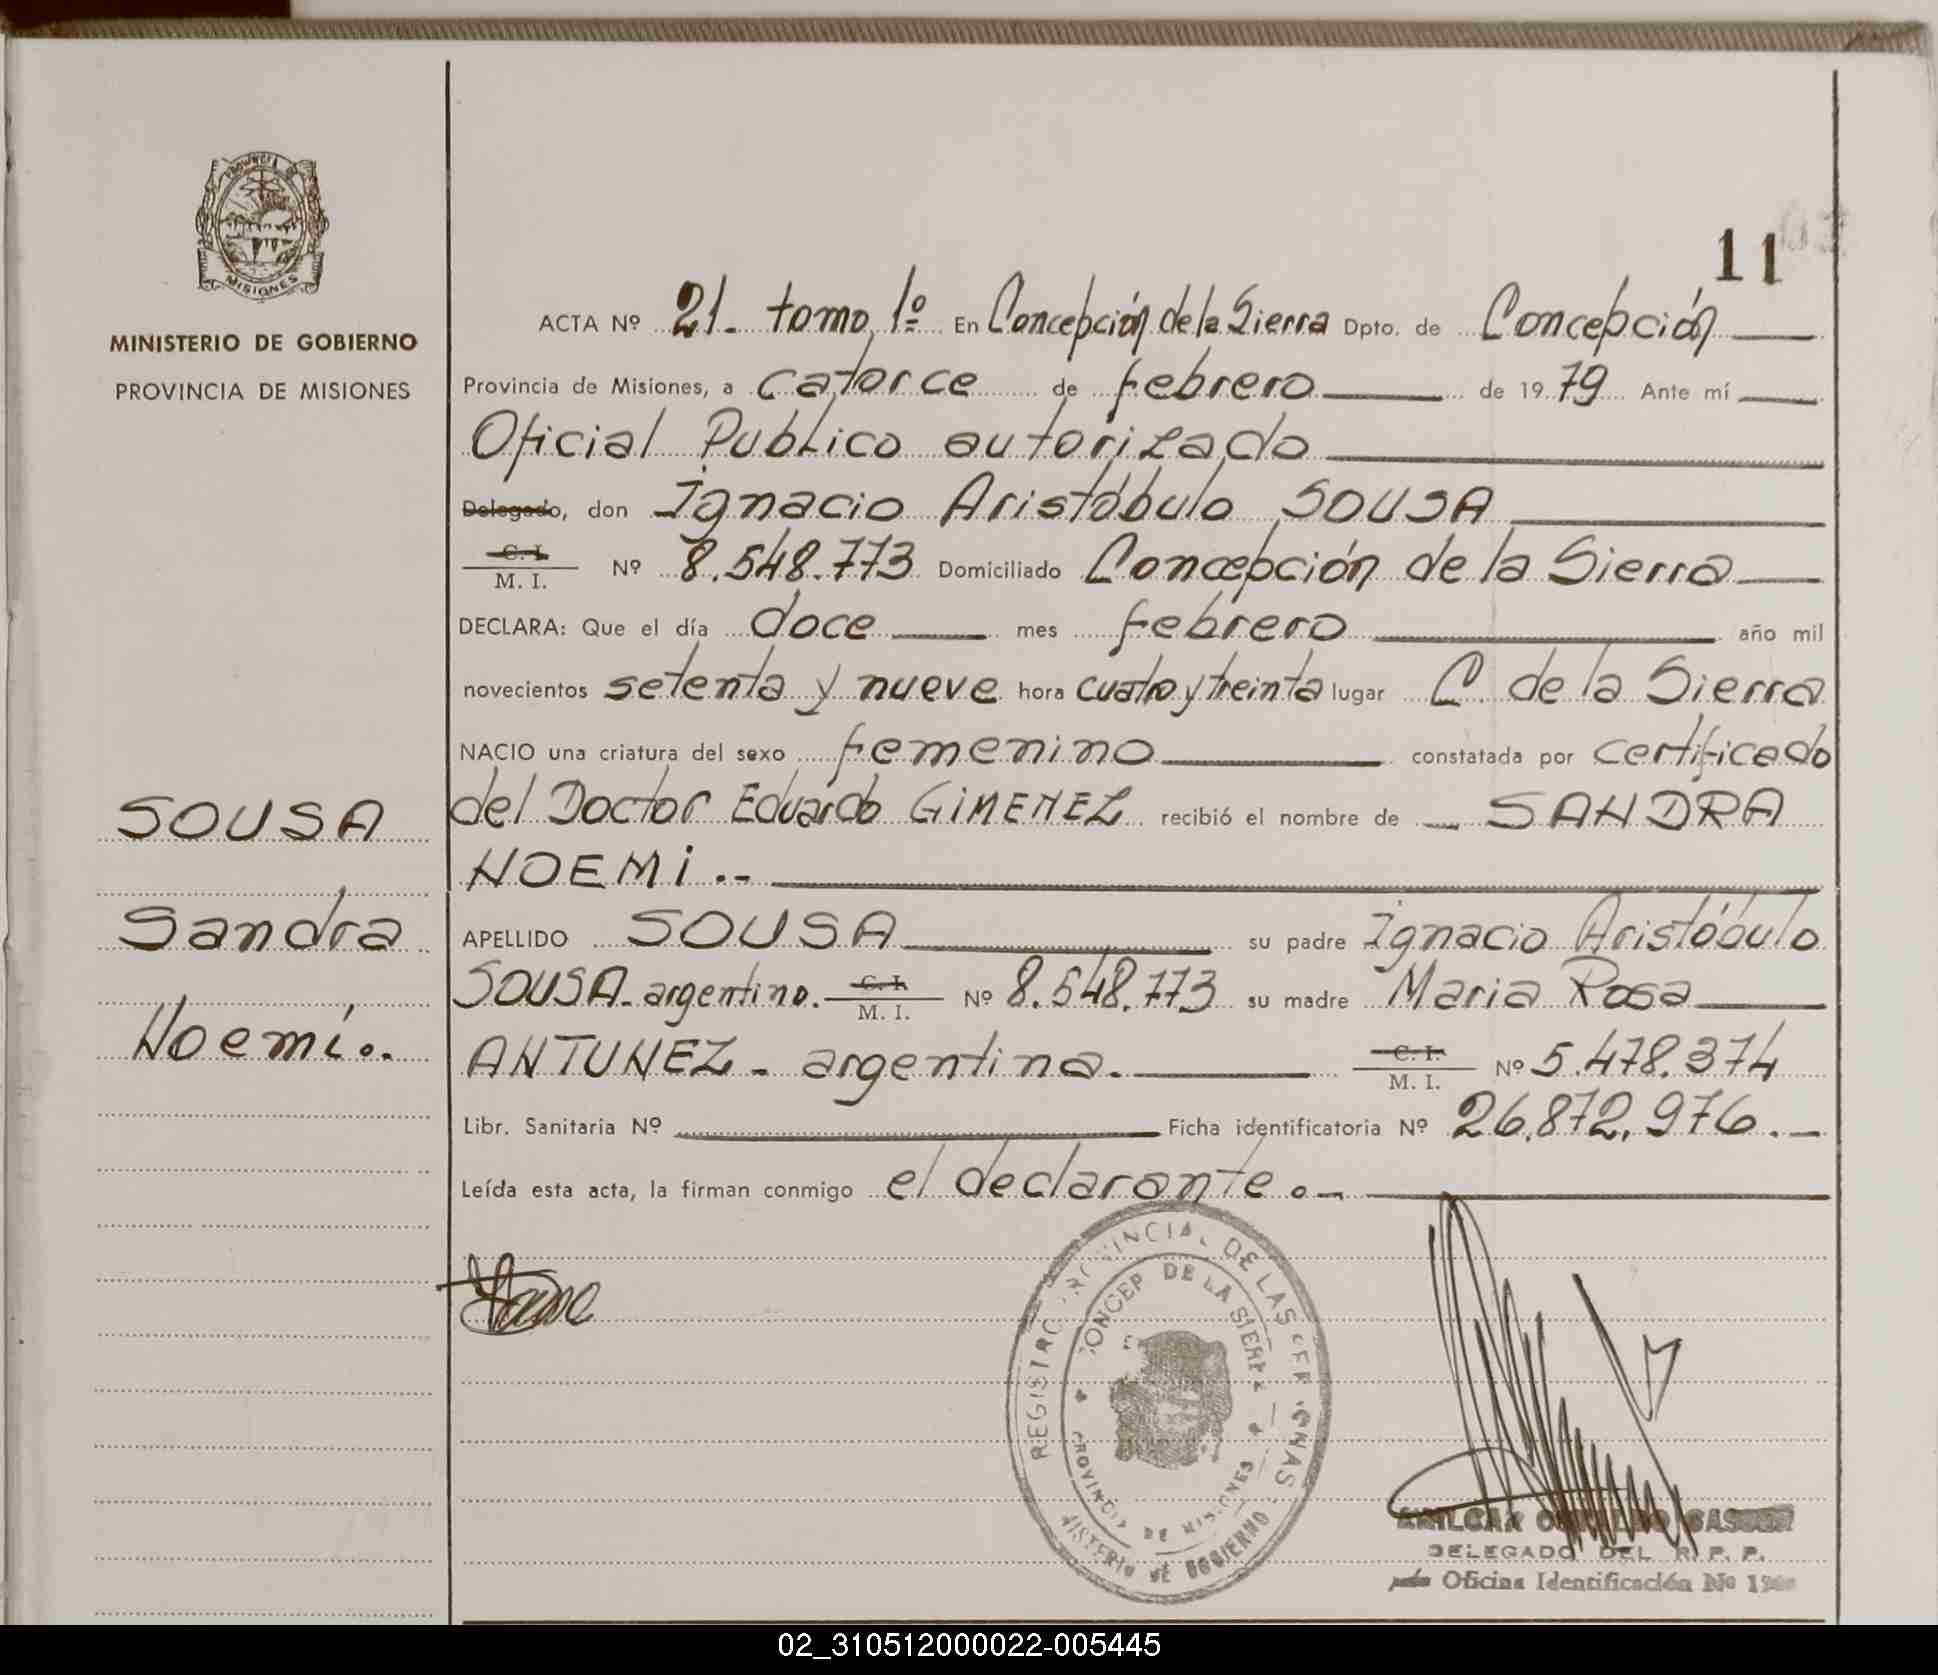 PROVINCIA
MISIONES
MINISTERIO DE GOBIERNO
PROVINCIA DE MISIONES
SOUSA
Sandra
Noemí..
11
ACTA Nº 21. tomo 1º En Concepción de la Sierra Dpto. de Concepción
Provincia de Misiones, a catorce de febrero de 1979 Ante mí
Oficial Publico autorizado
Delegado, don Ignacio Aristóbulo SOUSA
C. I. / M. I. Nº 8.548.773 Domiciliado Concepción de la Sierra
DECLARA: Que el día doce mes febrero año mil
novecientos setenta y nueve hora cuatro y treinta lugar C. de la Sierra
NACIO una criatura del sexo femenino constatada por certificado
del Doctor Eduardo GIMENEZ recibió el nombre de SANDRA
NOEMI.-
APELLIDO SOUSA su padre Ignacio Aristóbulo
SOUSA. argentino. C. I. / M. I. Nº 8.548.773 su madre Maria Rosa
ANTUNEZ - argentina. C. I. / M. I. Nº 5.478.374
Libr. Sanitaria Nº Ficha identificatoria Nº 26.872.976.-
Leída esta acta, la firman conmigo el declarante.-
REGISTRO PROVINCIAL DE LAS PERSONAS
CONCEP. DE LA SIERRA
PROVINCIA DE MISIONES
MINISTERIO DE GOBIERNO
DELEGADO DEL R. P. P.
Oficina Identificación No
02_310512000022-005445